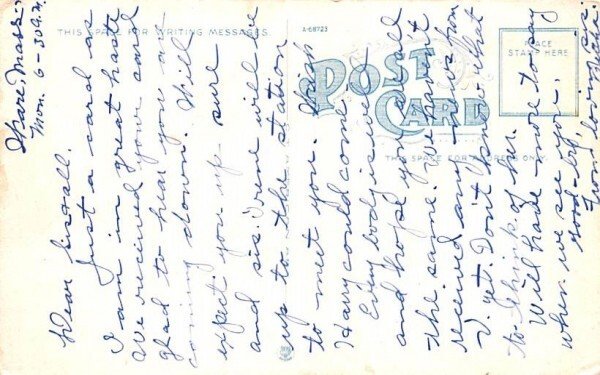 THIS SPACE FOR WRITING MESSAGES
A-68723
POST
CARD
PLACE
STAMP HERE
THIS SPACE FOR ADDRESS ONLY
Ware, Mass.
Mon. 6-30 A.M.
Dear
Just a card as
I am in great haste
We received your card
glad to hear you are
coming down. Will
expect you up sure
and sis. Irene will be
up to the station
to meet you.
Harry could come.
Every body is well
and hope you are all
the same. We haven't
received any news from
V. yet. Don't know what
to think of her.
Will have more to say
when we see you.
good-by,
From loving sis.